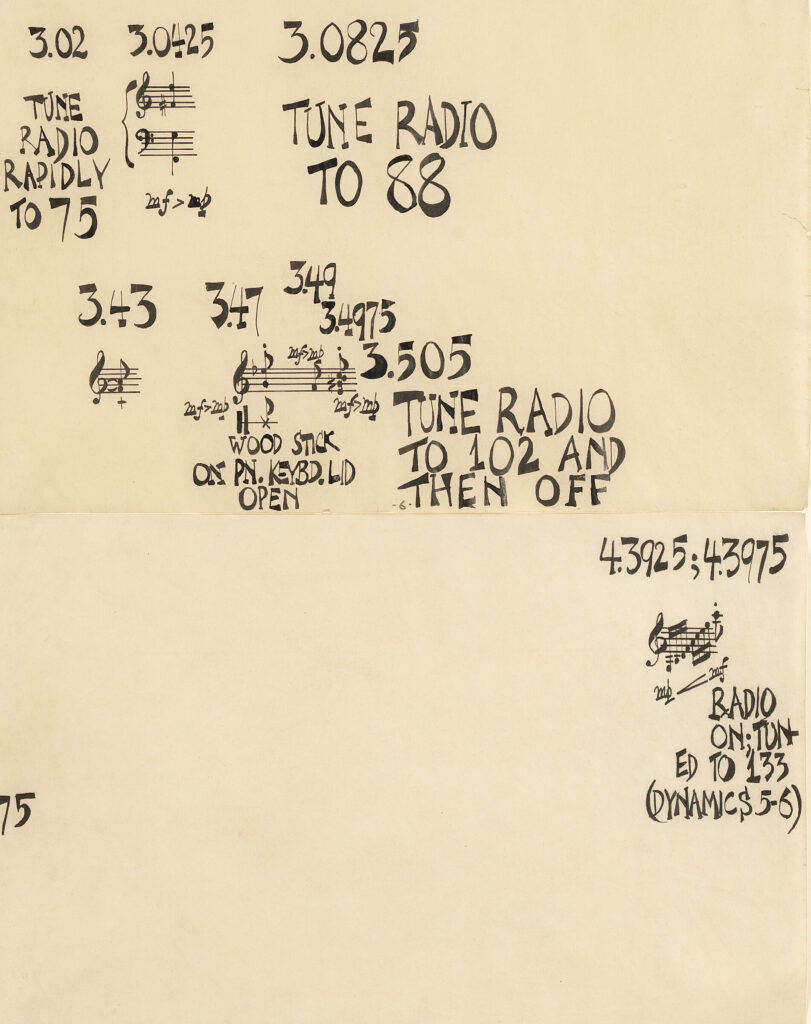 3.02
3.0425
3.0825
TUNE
RADIO
RAPIDLY
TO 75
mf > mp
TUNE RADIO
TO 88
3.43
3.47
3.49
3.4975
3.505
mf>mp
mf>mp
mf>mp
WOOD STICK
ON PN. KEYBD. LID
OPEN
TUNE RADIO
TO 102 AND
THEN OFF
-6-
4.3925; 4.3975
mp < mf
RADIO
ON; TUN-
ED TO 133
(DYNAMICS 5-6)
75